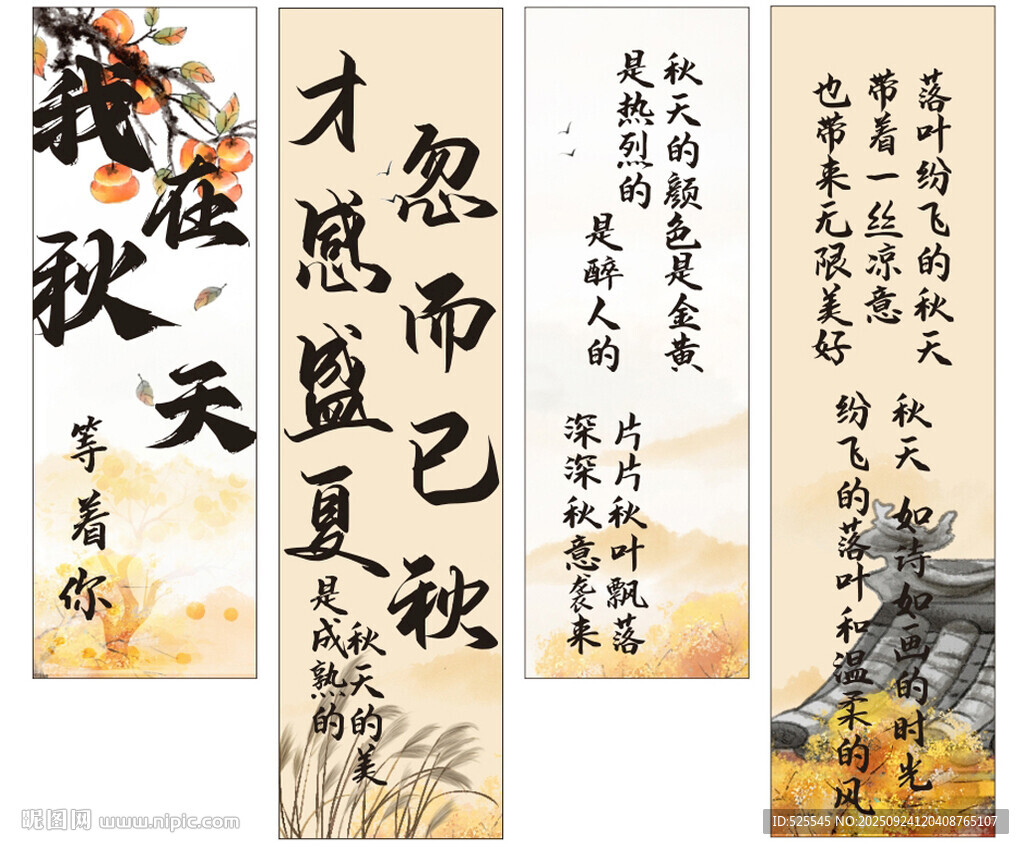 我在秋天
等着你
才感盛夏
忽而已秋
秋天的美
是成熟的
秋天的颜色是金黄
是热烈的
是醉人的
片片秋叶飘落
深深秋意袭来
落叶纷飞的秋天
带着一丝凉意
也带来无限美好
秋天 如诗如画的时光
纷飞的落叶和温柔的风
昵图网 www.nipic.com
ID:525545 NO:20250924120408765107